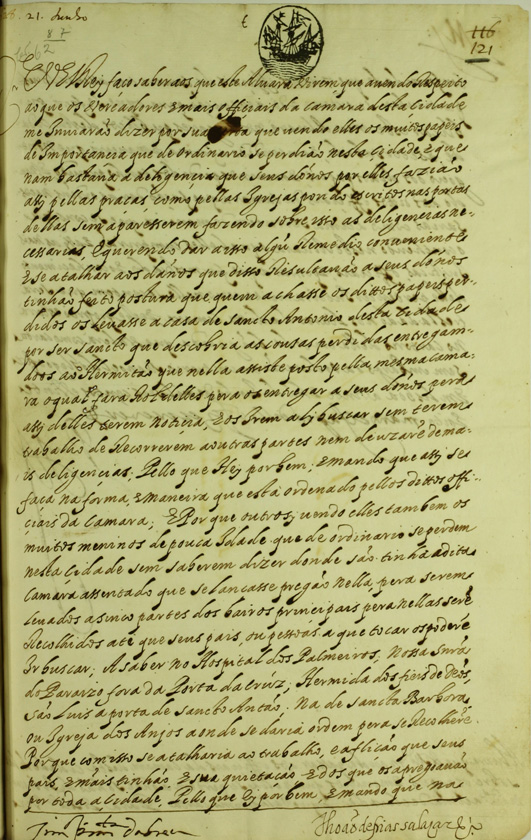 21. Junho
87
2
116
121
EV ElRey faço saber aos que este Alvara virem que avendo Respeito
ao que os Vereadores E mais officiais da camara desta Cidade
me Inviarão dizer por sua que vendo elles os muitos papeis
de Importancia que de Ordinario se perdião nesta Cidade, E que
nam bastava a deligencia que seus donos por elles fazião
assy pellas praças como pellas Igrejas pondo escritos nas portas
dellas sem aparesserem fazendo sobre isso as deligencias ne-
cessarias, E querendo dar a isso algũ Remedio conveniente
E se atalhar aos danos que disso Resultavão a seus donos
tinhão feito postura que quem achasse os dittos papeis per-
didos os levasse a casa de sancto Antonio desta Cidade
por ser sancto que descobria as cousas perdidas entregam-
doos ao Hermitão que nella assiste posto pella mesma cama-
ra o qual fara Rol delles pera os entregar a seus donos pera
assy delles terem noticia, E os Irem aly buscar sem terem
trabalho de Recorrerem a outras partes nem de uzarẽ de ma-
is deligencias, Pello que Hey por bem, E mando que assy se
faça na forma, E maneira que esta ordenado pellos dittos offi-
ciais da Camara; E Porque outrosy vendo elles tambem os
muitos meninos de pouca Idade que de ordinario se perdem
nesta Cidade sem saberem dizer donde são tinha a ditta
Camara assentado que se lançasse pregão nella, pera serem
levados a sinco partes dos bairros principais pera nellas serẽ
Recolhidos até que seus pais, ou pessoas a que tocar os poderẽ
Ir buscar; A saber no Hospital dos Palmeiros, Nossa Snra
do Paraizo fora da Porta da Crúz; Hermida dos fieis de Deos,
São Luis a porta de sancto Antão. Na de sancta Barbora,
ou Igreja dos Anjos aonde se daria ordem pera se Recolherẽ.
Porque com isso se atalharia ao trabalho, e aflição que seus
pais, E mais tinhão E sua quietação E dos que os apregoavão
por toda a Cidade, Pello que Ey por bem E mando que na